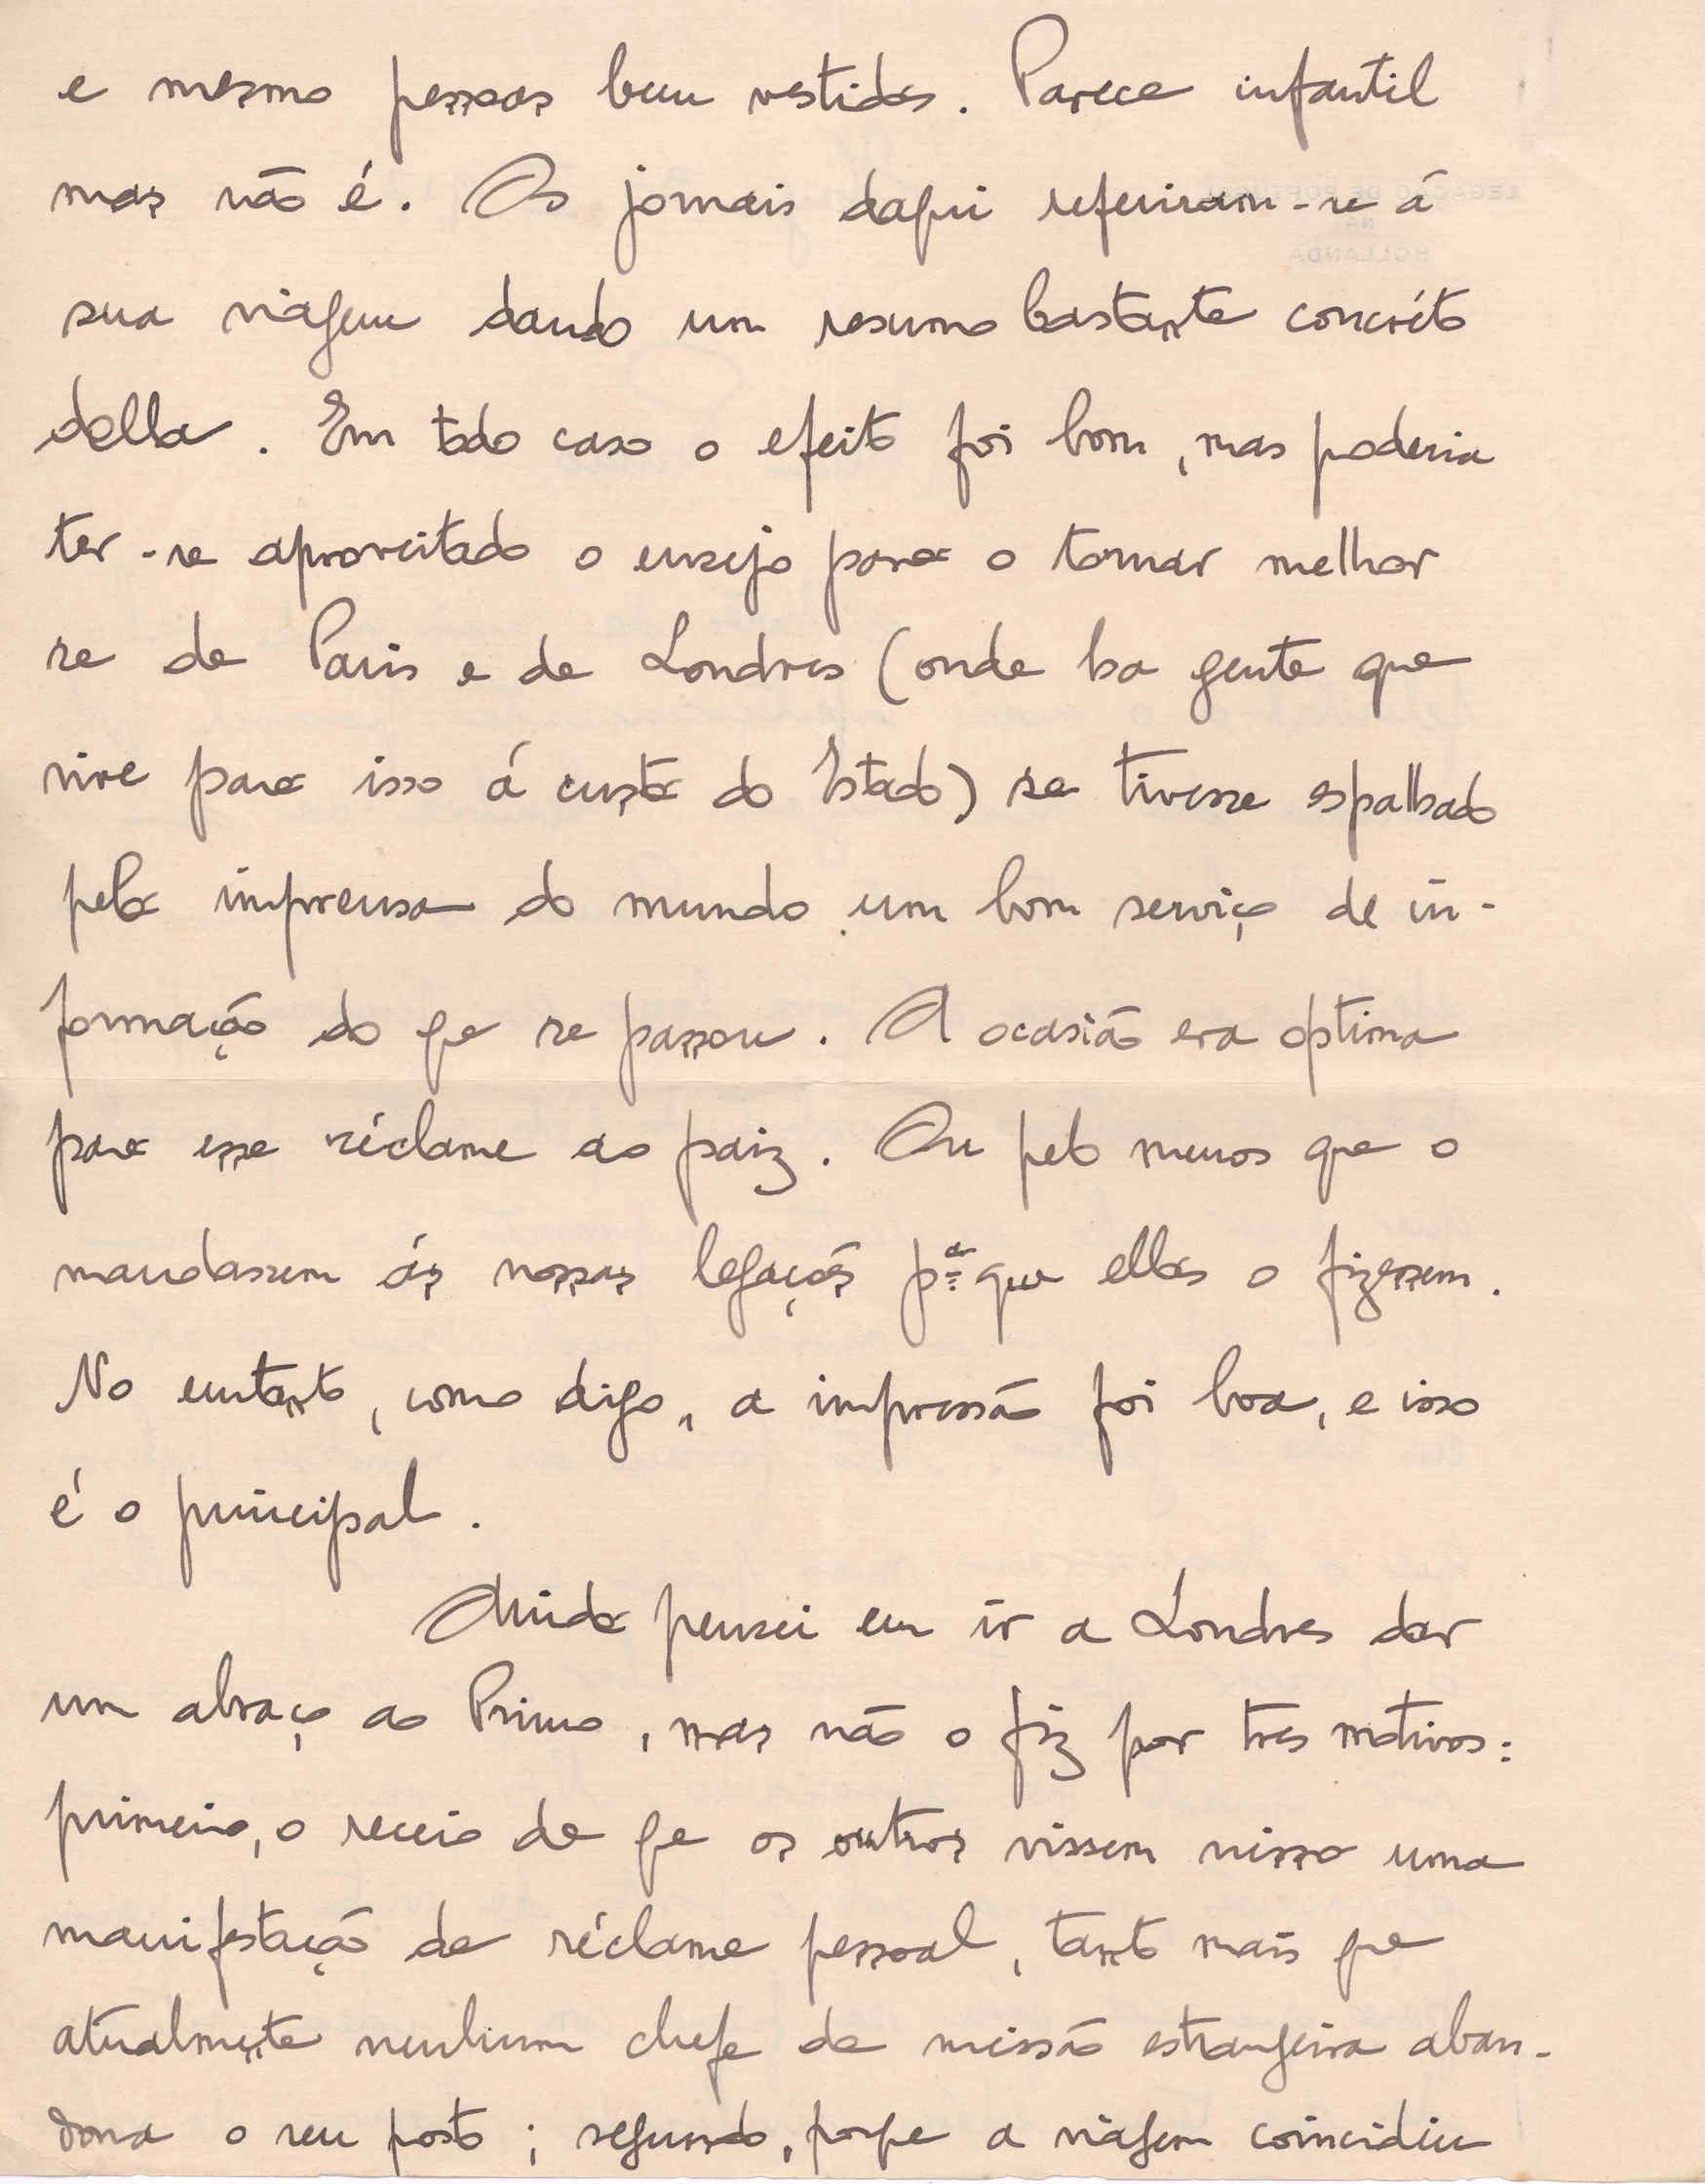 e mesmo pessoas bem vestidas. Parece infantil
mas não é. Os jornais daqui referiram-se á
sua viagem dando um resumo bastante concréto
della. Em todo caso o efeito foi bom, mas poderia
ter-se aproveitado o ensejo para o tornar melhor
se de Paris e de Londres (onde ha gente que
vive para isso á custa do Estado) se tivesse espalhado
pela imprensa do mundo um bom serviço de in-
formação do qe se passou. A ocasião era optima
para esse réclame ao paiz. Ou pelo menos que o
mandassem ás nossas legações pª que ellas o fizessem.
No entanto, como digo, a impressão foi boa, e isso
é o principal.
Ainda pensei em ir a Londres dar
um abraço ao Primo, mas não o fiz por tres motivos:
primeiro, o receio de qe os outros vissem nisso uma
manifestação de réclame pessoal, tanto mais qe
atualmente nenhum chefe de missão estrangeira aban-
dona o seu posto; segundo, porqe a viagem coincidiu
LEGAÇÃO DE PORTUGAL
NA
HOLLANDA